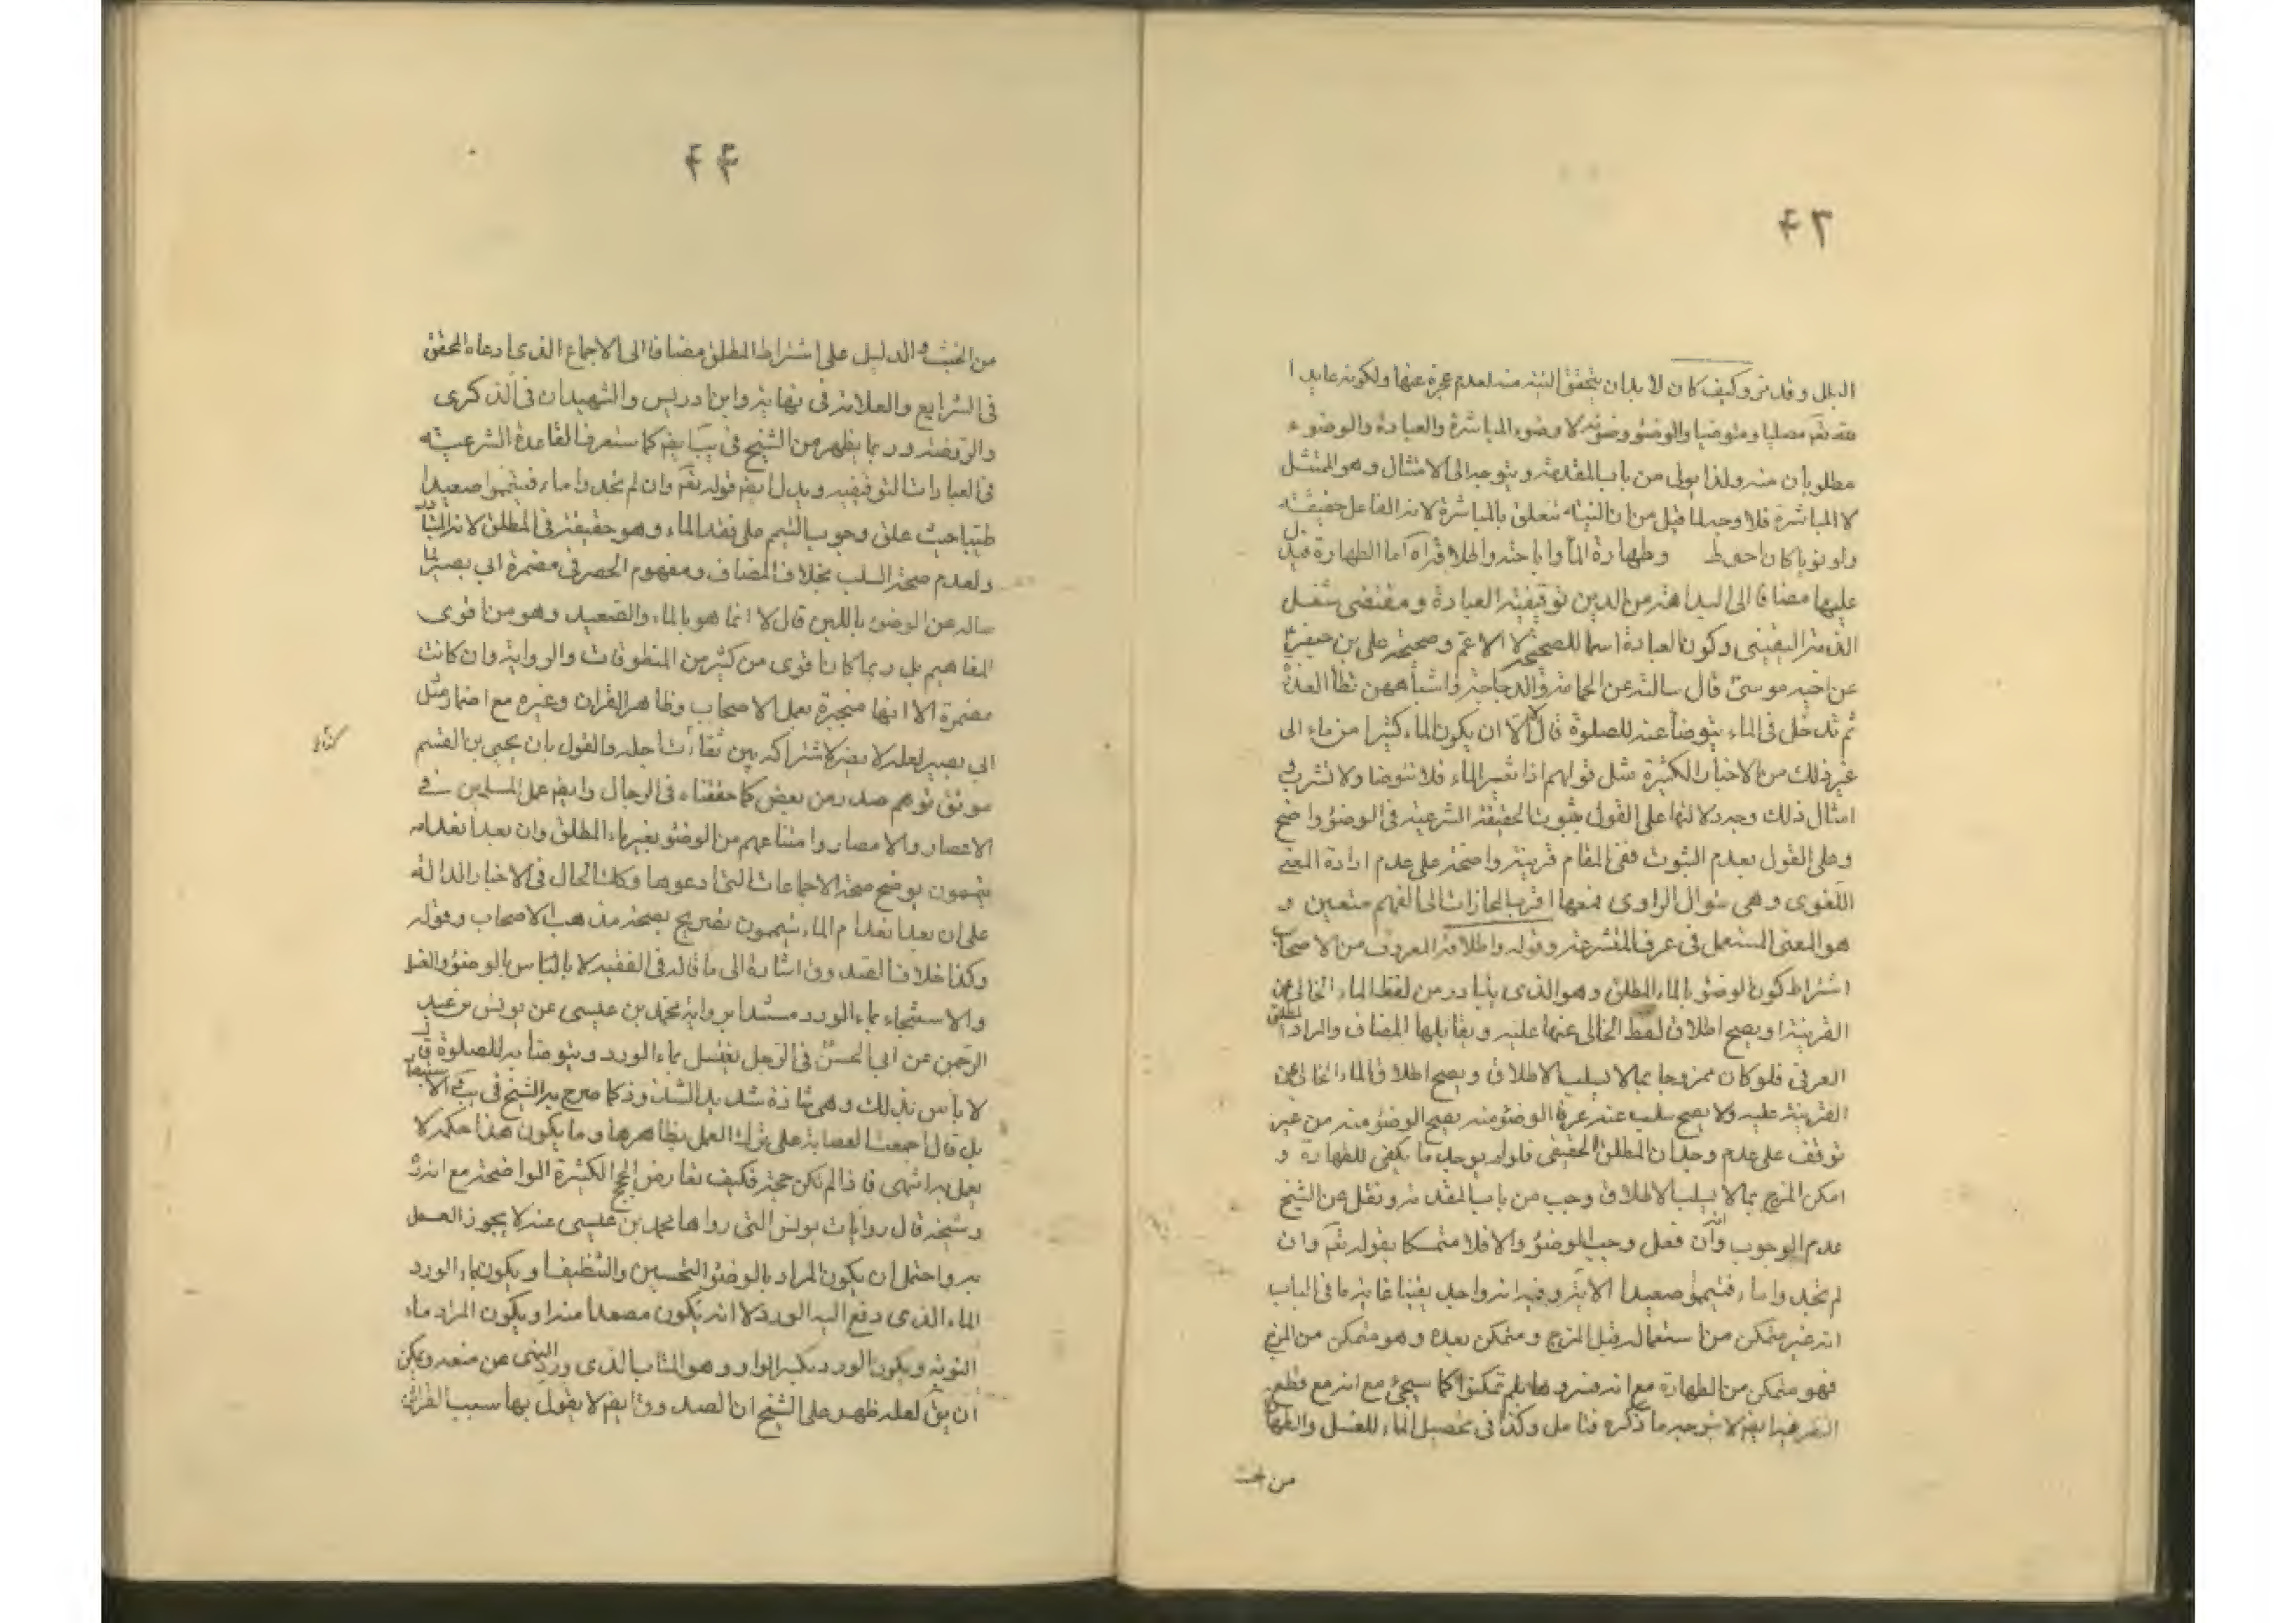 ۴۳
البلل وقد مر وكيف كان لا بد ان يتحقق النية منه لعدم عجزه عنها ولكونه عابدا
مصليا ومتوضيا والوضوء وضوئه لا وضوء المباشرة والعبادة والوضوء
مطلوبان منه ولذا يولى من باب المقدمة ويتوجه الى الامتثال وهو الممتثل
لا المباشرة فلا وجه لما قيل من ان النية تتعلق بالمباشرة لانه الفاعل حقيقة
ولو نويا كان احوط وطهارة الماء واباحته واطلاقه اما الطهارة فيدل
عليها مضافا الى البداهة من الدين توقيفية العبادة ومقتضى شغل
الذمة اليقينى وكون العبادة اسما للصحيحة لا الاعم وصحيحة على بن جعفر
عن اخيه موسى قال سالته عن الحمامة والدجاجة واشباههن تطأ العذرة
ثم تدخل فى الماء يتوضأ عنه للصلوة قال لا الا ان يكون الماء كثيرا من ماء الى
غير ذلك من الاخبار الكثيرة مثل قولهم اذا تغير الماء فلا تتوضا ولا تشرب
امثال ذلك وجه دلالتها على القول بثبوت الحقيقة الشرعية فى الوضوء واضح
وعلى القول بعدم الثبوت ففى المقام قرينة واضحة على عدم ارادة المعنى
اللغوى وهى سؤال الراوى فمعها اقرب المجازات الى الفهم متعين و
هو المعنى المستعمل فى عرف المتشرعة وقوله واطلاقه المعروف من الاصحاب
اشتراط كون الوضوء بالماء المطلق وهو الذى يتبادر من لفظ الماء الخالى عن
القرينة او يصح اطلاق لفظ الخالى عنها عليه ويقابلها المضاف والمراد المطلق
العرفى فلو كان ممزوجا بما لا يسلب الاطلاق ويصح اطلاق الماء الخالى عن
القرينة عليه ولا يصح سلبه عنه عرفا الوضوء منه يصح الوضوء منه من غير
توقف على عدم وجدان المطلق الحقيقى فلو لم يوجد ما يكفى للطهارة و
امكن المزج بما لا يسلب الاطلاق وجب من باب المقدمة ونقل عن الشيخ
عدم الوجوب وانه ان فعل وجب الوضوء والا فلا متمسكا بقوله تعم وان
لم تجدوا ماء فتيمموا صعيدا الاية وفيه انه واجد يقينا غاية ما فى الباب
انه غير متمكن من استعماله قبل المزج ومتمكن بعده وهو متمكن من المزج
فهو متمكن من الطهارة مع انه كما سيجئ مع انه مع قطع
النظر فيه ايضا لا يتوجه ما ذكره فتامل وكذا فى تحصيل الماء للغسل والطهارة
من الخبث
۴۴
من الخبث والدليل على اشتراط المطلق مضافا الى الاجماع الذى ادعاه المحقق
فى الشرايع والعلامة فى نهايته وابن ادريس والشهيدان فى الذكرى
والروضة وربما يظهر من الشيخ فى يب ايضا كما ستعرف القاعدة الشرعية
فى العبادات التوقيفية ويدل ايضا قوله تعم وان لم تجدوا ماء فتيمموا صعيدا
طيبا حيث علق وجوب التيمم على فقد الماء وهو حقيقة فى المطلق لانه المتبادر
ولعدم صحة السلب بخلاف المضاف ومفهوم الحصر فى مضمرة ابى بصير لما
ساله عن الوضوء باللبن قال لا انما هو بالماء والصعيد وهو من اقوى
المفاهيم بل ربما كان اقوى من كثير من المنطوقات والرواية وان كانت
مضمرة الا انها منجبرة بعمل الاصحاب وظاهر القران وغيره مع اضمار مثل
ابى بصير لعله لا يضر لاشتراكه بين ثقات اجلة والقول بان يحيى بن القسم
موثق توهم صدر من بعض كما حققناه فى الرجال وايضا عمل المسلمين فى
الاعصار والامصار وامتناعهم من الوضوء بغير ماء المطلق وان بعد انعدامه
يتيممون يوضح صحة الاجماعات التى ادعوها وكذا الحال فى الاخبار الدالة
على ان بعد انعدام الماء يتيممون تصريح بصحة مذهب الاصحاب وقوله
وكذا خلافا لصدوق اشارة الى ما قاله فى الفقيه لا باس بالوضوء والغسل
والاستنجاء بماء الورد مستندا برواية محمد بن عيسى عن يونس بن عبد
الرحمن عن ابى الحسن فى الرجل يغتسل بماء الورد ويتوضأ به للصلوة قال
لا باس بذلك وهى شاذة شديدا لشذوذ كما صرح به الشيخ فى يب والاستبصار
بل قال اجمعت العصابة على ترك العمل بظاهرها وما يكون هذا حكمه لا
يعمل به انتهى فاذا لم تكن حجة فكيف تعارض الحجج الكثيرة الواضحة مع انه
وشيخه قال روايات يونس التى رواها محمد بن عيسى عنه لا يجوز العمل
به واحتمل ان يكون المراد بالوضوء التحسين والتنظيف او يكون بماء الورد
الماء الذى وقع اليه الورد لا انه يكون مصعدا منه او يكون المراد ماء
النوبة ويكون الورد بكسر الواو وهو المتاب الذى ورد النهى عن منعه ويمكن
ان يق لعله ظهر على الشيخ ان الصدوق ايضا لا يقول بها سبب القرائن